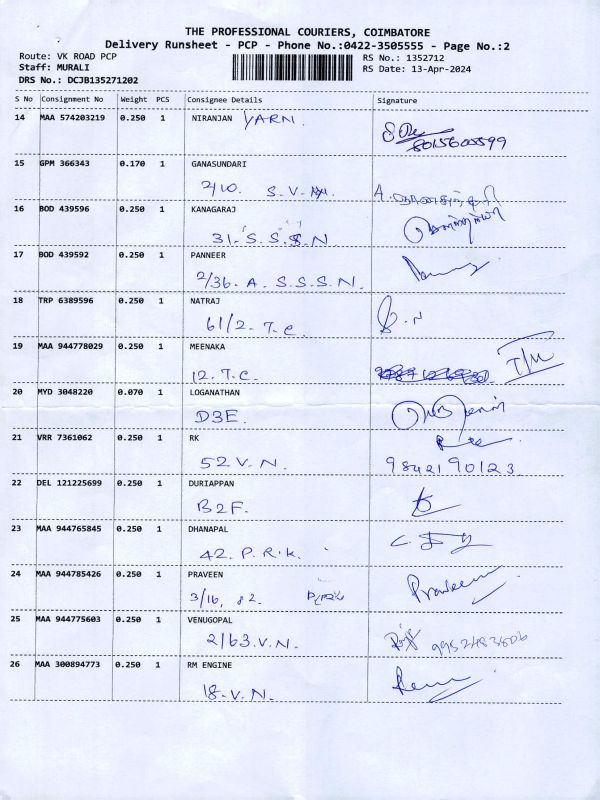 THE PROFESSIONAL COURIERS, COIMBATORE
Delivery Runsheet - PCP - Phone No.:0422-3505555 - Page No.:2
Route: VK ROAD PCP RS No.: 1352712
Staff: MURALI RS Date: 13-Apr-2024
DRS No.: DCJB135271202
S No Consignment No Weight PCS Consignee Details Signature
14 MAA 574203219 0.250 1 NIRANJAN YARN.
8015600599
15 GPM 366343 0.170 1 GANASUNDARI
2/10. S.V.
16 BOD 439596 0.250 1 KANAGARAJ
31. S.S.S.N
17 BOD 439592 0.250 1 PANNEER
2/36. A. S.S.S.N.
18 TRP 6389596 0.250 1 NATRAJ
61/2. T.C. S.N
19 MAA 944778029 0.250 1 MEENAKA
12. T.C.
20 MYD 3048220 0.070 1 LOGANATHAN
D3E.
21 VRR 7361062 0.250 1 RK
52 V.N. 9842190123
22 DEL 121225699 0.250 1 DURIAPPAN
B2F.
23 MAA 944765845 0.250 1 DHANAPAL
42. P.R.K.
24 MAA 944785426 0.250 1 PRAVEEN
3/16, 82. Praveen
25 MAA 944775603 0.250 1 VENUGOPAL
2/63. V.N. 9952483806
26 MAA 300894773 0.250 1 RM ENGINE
18. V.N.